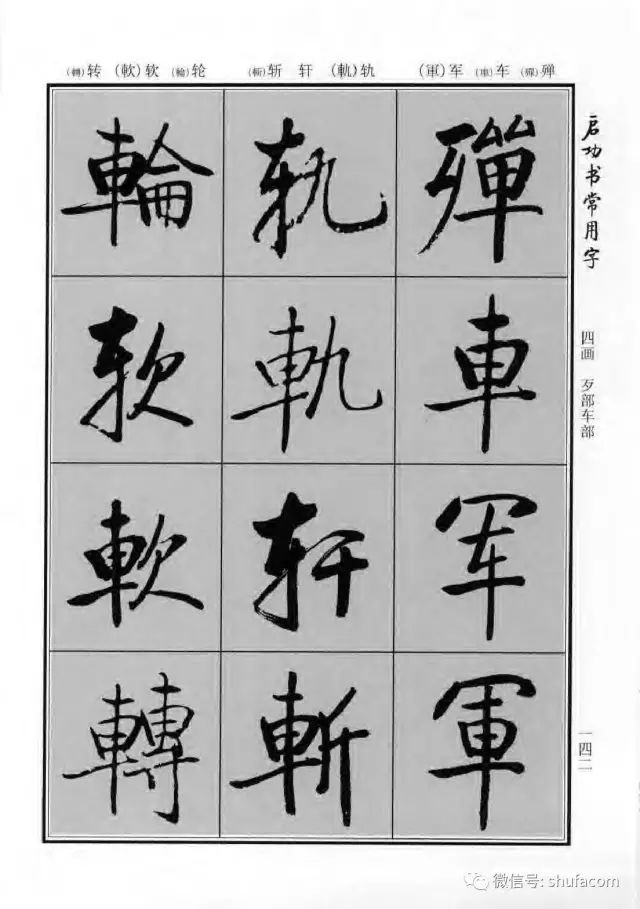 (轉)转 (軟)软 (輪)轮 (斬)斩 轩 (軌)轨 (軍)军 (車)车 (殫)殚
启功书常用字
四画 歹部车部
一四二
殫車军軍
轨軌轩斬
輪软軟轉
微信号: shufacom